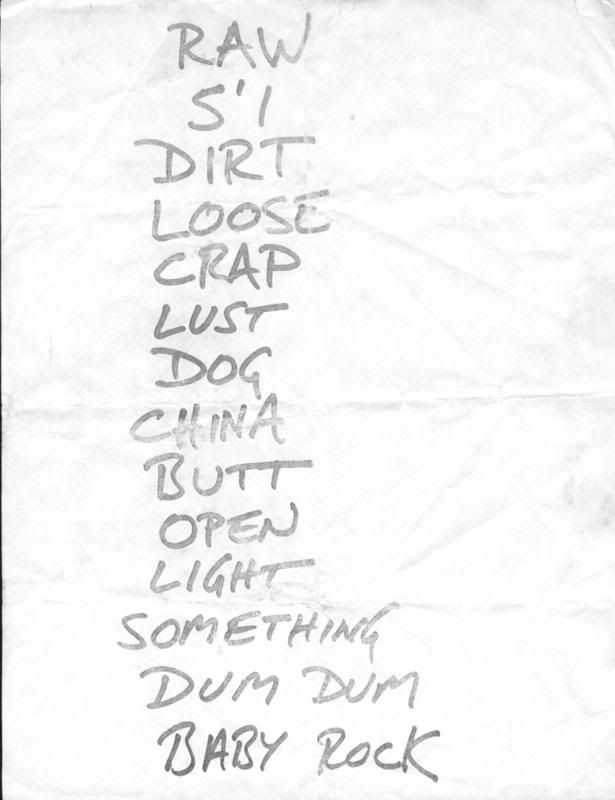 RAW
S'I
DIRT
LOOSE
CRAP
LUST
DOG
CHINA
BUTT
OPEN
LIGHT
SOMETHING
DUM DUM
BABY ROCK